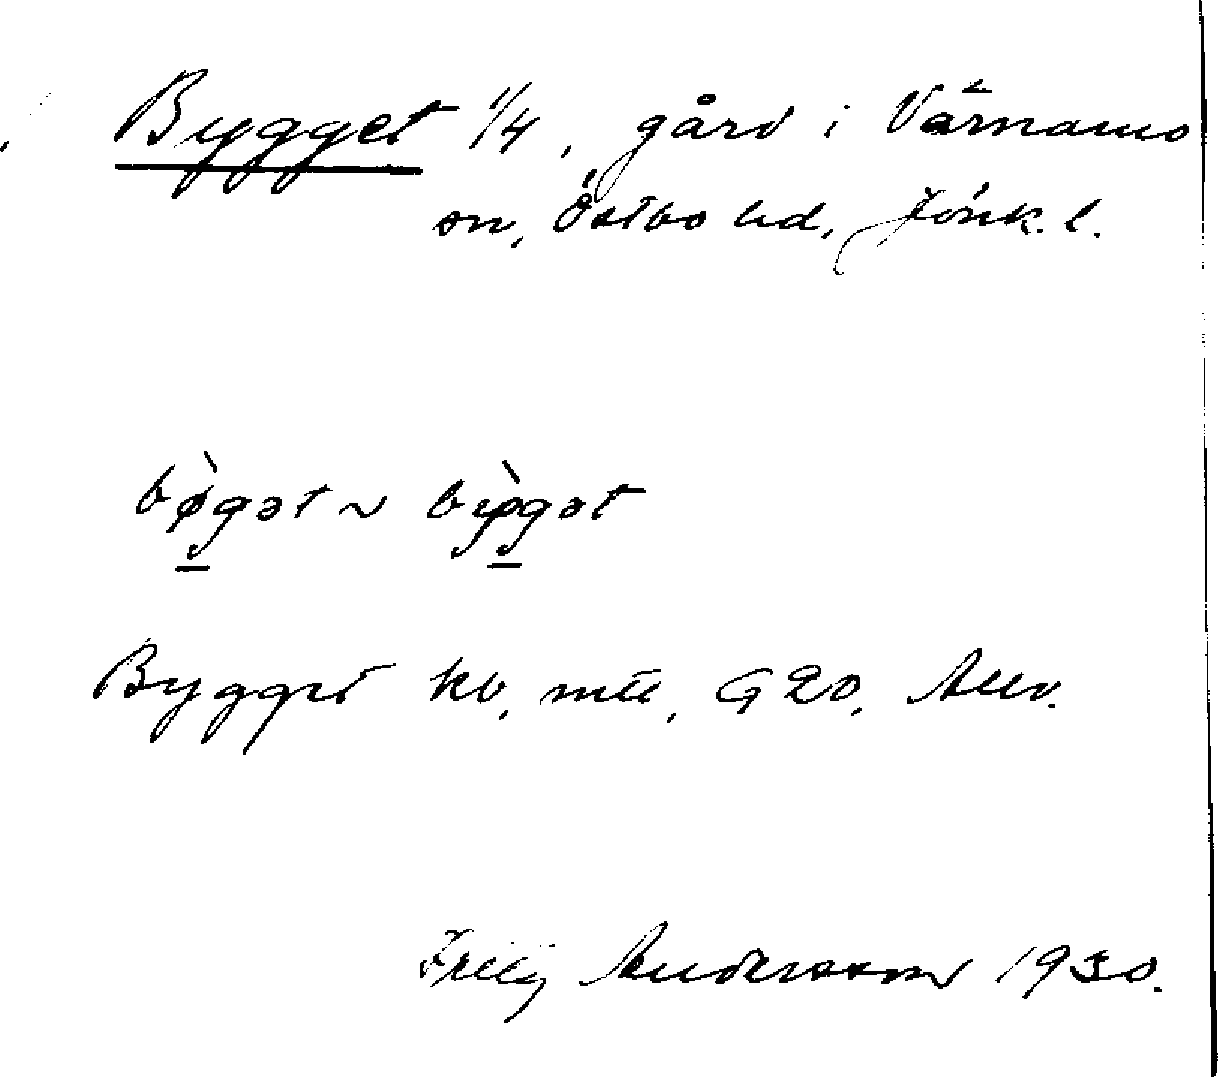 Bygget 1/4, gård i Värnamo
sn, Östbo hd, Jönk. l.
bø̀gət ~ bỳgət
Bygget kb, mtl, G20,
Andersson 1930.